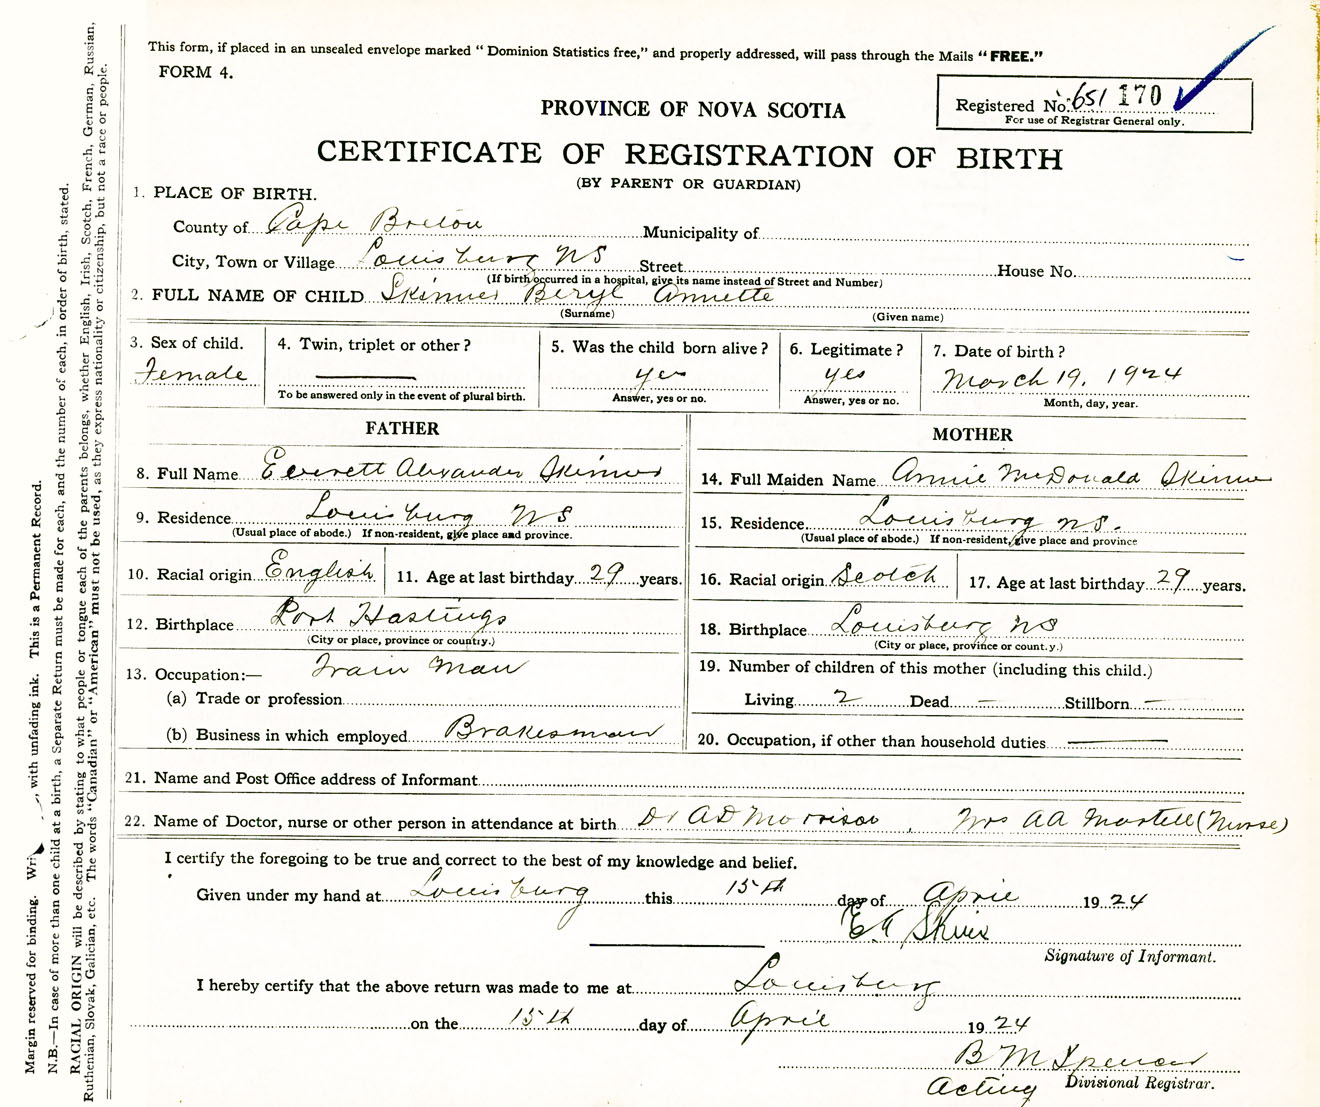 This form, if placed in an unsealed envelope marked " Dominion Statistics free," and properly addressed, will pass through the Mails " FREE."
FORM 4.
Registered No. 651 170
For use of Registrar General only.
PROVINCE OF NOVA SCOTIA
CERTIFICATE OF REGISTRATION OF BIRTH
(BY PARENT OR GUARDIAN)
1. PLACE OF BIRTH.
County of Cape Breton Municipality of
City, Town or Village Louisburg NS Street House No.
(If birth occurred in a hospital, give its name instead of Street and Number)
2. FULL NAME OF CHILD Skinner Beryl Annette
(Surname) (Given name)
3. Sex of child. 4. Twin, triplet or other ? 5. Was the child born alive ? 6. Legitimate ? 7. Date of birth ?
Female — yes yes March 19, 1924
To be answered only in the event of plural birth. Answer, yes or no. Answer, yes or no. Month, day, year.
FATHER
8. Full Name Everett Alexander Skinner
9. Residence Louisburg NS
(Usual place of abode.) If non-resident, give place and province.
10. Racial origin English 11. Age at last birthday 29 years.
12. Birthplace Port Hastings
(City or place, province or country.)
13. Occupation:— Train Man
(a) Trade or profession
(b) Business in which employed Brakesman
MOTHER
14. Full Maiden Name Annie McDonald Skinner
15. Residence Louisburg NS.
(Usual place of abode.) If non-resident, give place and province
16. Racial origin Scotch 17. Age at last birthday 29 years.
18. Birthplace Louisburg NS
(City or place, province or count.y.)
19. Number of children of this mother (including this child.)
Living 2 Dead — Stillborn —
20. Occupation, if other than household duties —
21. Name and Post Office address of Informant
22. Name of Doctor, nurse or other person in attendance at birth Dr AD Morrison , Mrs AA Martell (Nurse)
I certify the foregoing to be true and correct to the best of my knowledge and belief.
Given under my hand at Louisburg this 15th day of April 1924
EA Skinner
Signature of Informant.
I hereby certify that the above return was made to me at Louisburg
on the 15th day of April 1924
B M Spencer
Acting Divisional Registrar.
Margin reserved for binding. with unfading ink. This is a Permanent Record.
N.B.—In case of more than one child at a birth, a Separate Return must be made for each, and the number of each, in order of birth, stated.
RACIAL ORIGIN will be described by stating to what people or tongue each of the parents belongs, whether English, Irish, Scotch, French, German, Russian,
Ruthenian, Slovak, Galician, etc. The words "Canadian" or "American" must not be used, as they express nationality or citizenship, but not a race or people.